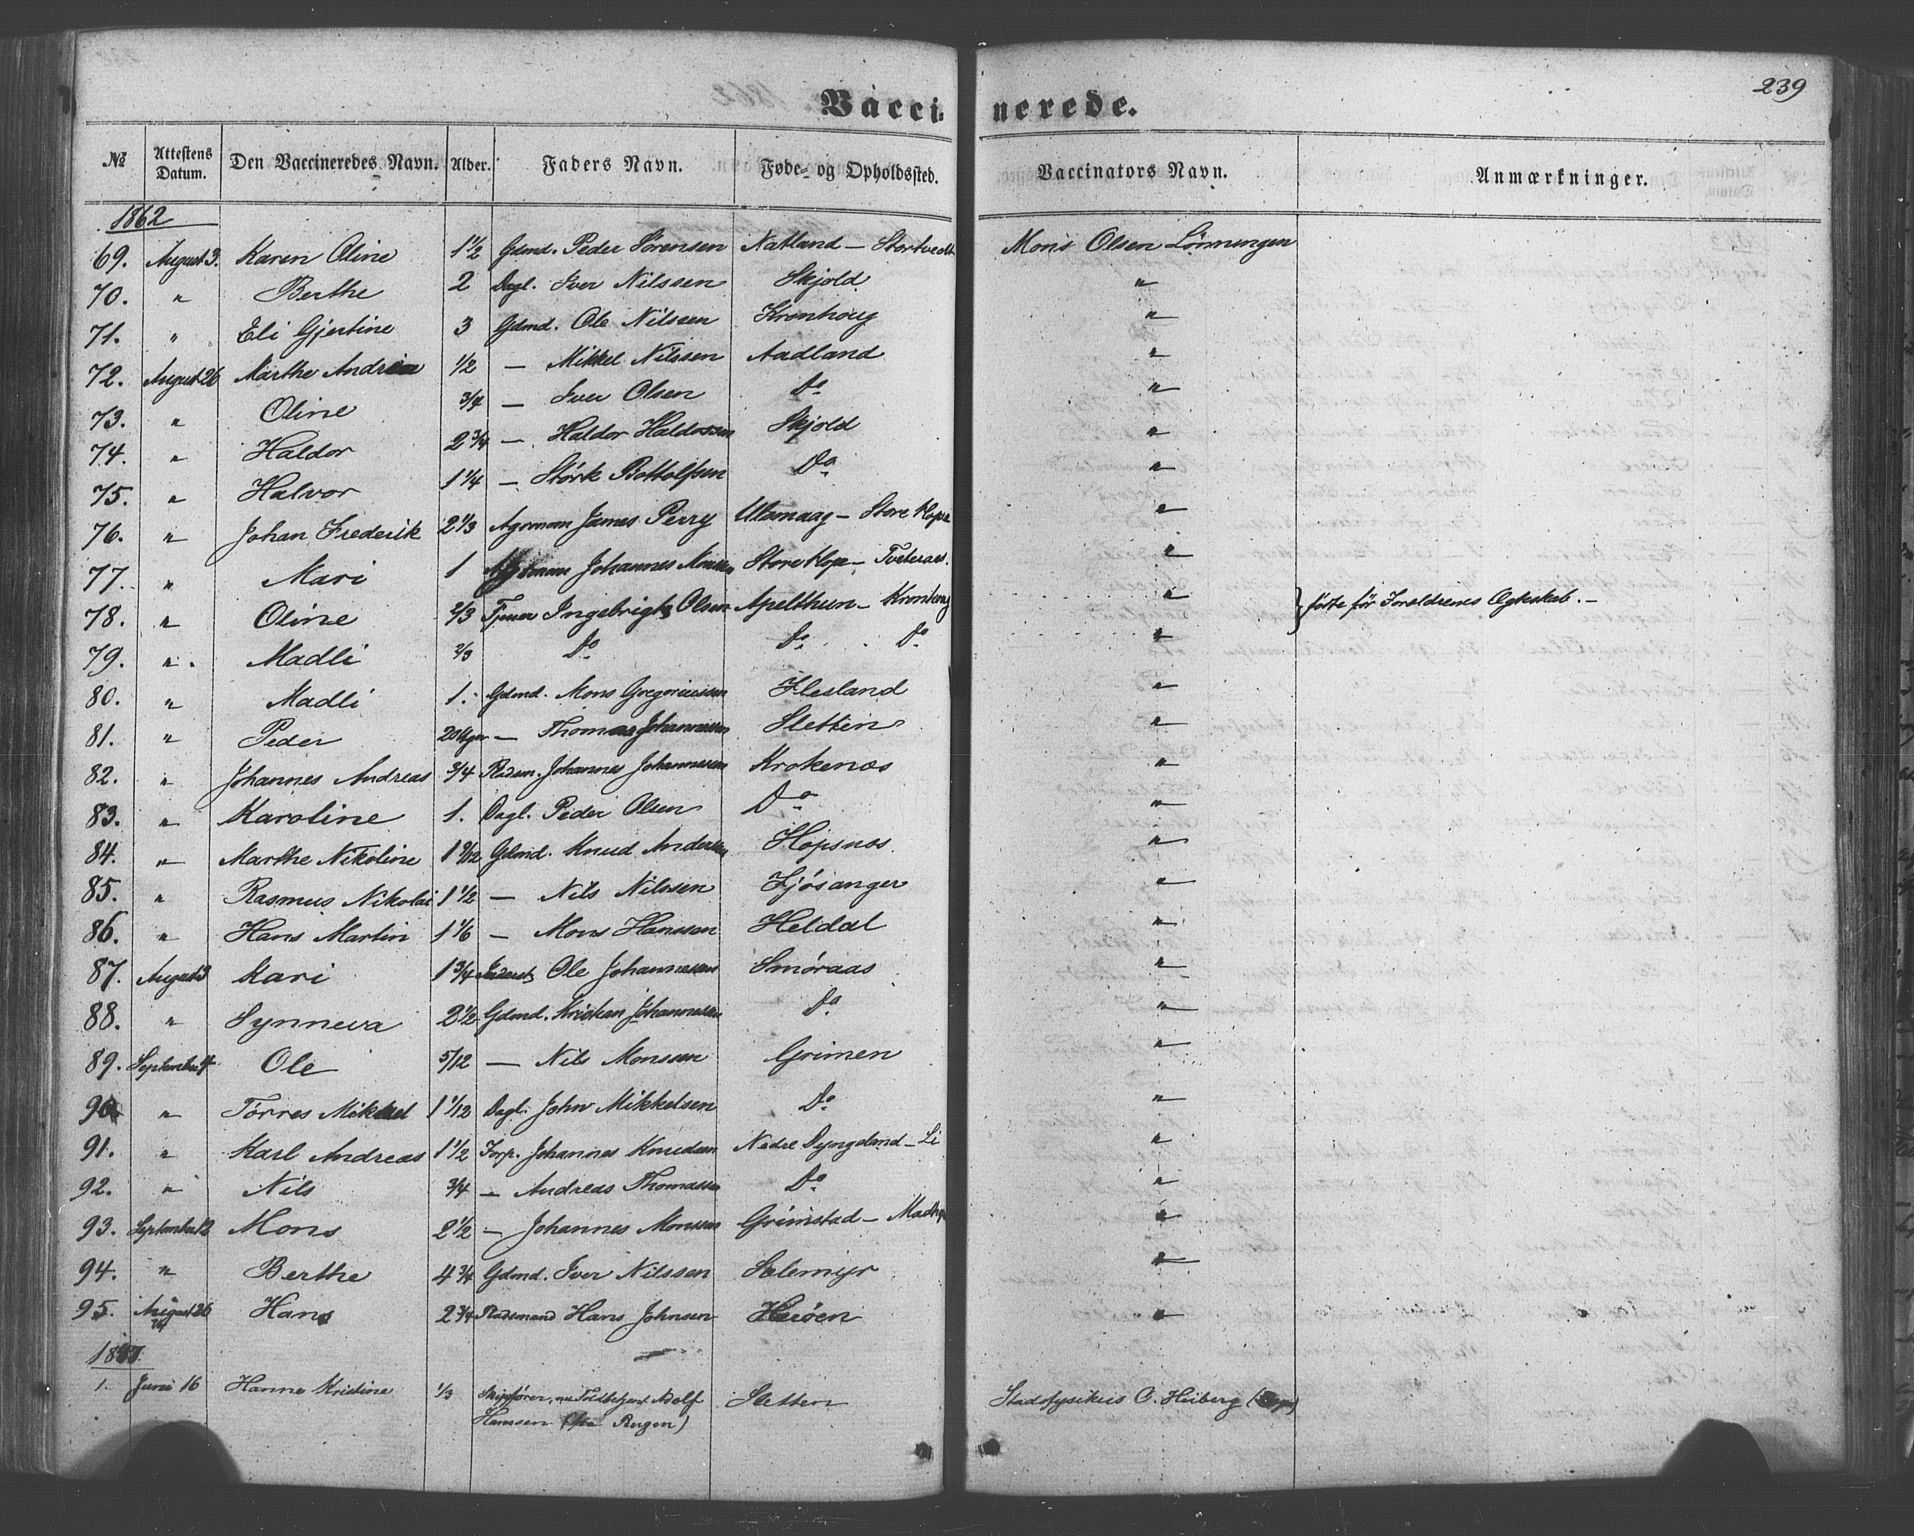 239
Vaccinerede.
№ Attestens Datum. Den Vaccineredes Navn. Alder. Faders Navn. Føde- og Opholdssted. Vaccinators Navn. Anmærkninger.
1862
69. August 3. Karen Oline 1 1/2 Gdmd. Peder Sørensen Natland – Stortvedt Mons Olsen Lønningen
70. " Berthe 2 Dagl. Iver Nilssen Skjold "
71. " Eli Gjertine 3 Gdmd. Ole Nilssen Kronhoug "
72. August 26 Marthe Andrea 1/2 — Mikkel Nilssen Aadland "
73. " Oline 3/4 — Iver Olsen Do "
74. " Haldor 2 3/4 — Haldor Haldossen Skjold "
75. " Halvor 1 1/4 — Størk Bottolfsen Do "
76. " Johan Frederik 2 1/3 James Perry Ulsmaag – Store Hope "
77. " Mari 1 Johannes Monsen Store Hope – Tveteraas. "
78. " Oline 2/3 Ingebrigt Olsen Apelthun – Kronhoug " } føste før Foreldrenes Ægteskab. –
79. " Madli 2/3 Do Do Do "
80. " Madli 1. Gdmd. Mons Gregoriussen Flesland "
81. " Peder — Thomas Johannessen Sletten "
82. " Johannes Andreas 3/4 Pladsm. Johannes Johannessen Krokenæs "
83. " Karoline 1. Dagl. Peder Olsen Do "
84. " Marthe Nikoline Gdmd. Knud Andersen Hopsnæs "
85. " Rasmus Nikolai 1 1/2 — Nils Nilssen Fjøsanger "
86. " Hans Martin 1 1/6 — Mons Hanssen Heldal "
87. August 3 Kari 1 3/4 Ole Johannessen Smøraas "
88. " Synneva 2 1/2 Gdmd. Kristian Johannessen Do "
89. September 4 Ole 5/12 — Nils Monssen Grimen "
90 " Tørres Mikkel 1 1/12 Dagl. John Mikkelsen Do "
91. " Karl Andreas 1 1/2 Forp. Johannes Knudsen Nedre Dyngeland – Li "
92. " Nils 3/4 — Andreas Thomassen Do "
93. September 12 Mons 2 1/2 — Johannes Monssen Grimstad – "
94. " Berthe 4 3/4 Gdmd. Iver Nilssen Sælemyr "
95. August 26 Hans 2 3/4 Pladsmand Hans Johnsen Herøen "
1. Juni 16 Hanne Kristine 1/3 Skipsfører, Toldbetjent Adolf Sletten Stadsfysikus O. Heiberg
Hanssen (fra Bergen)